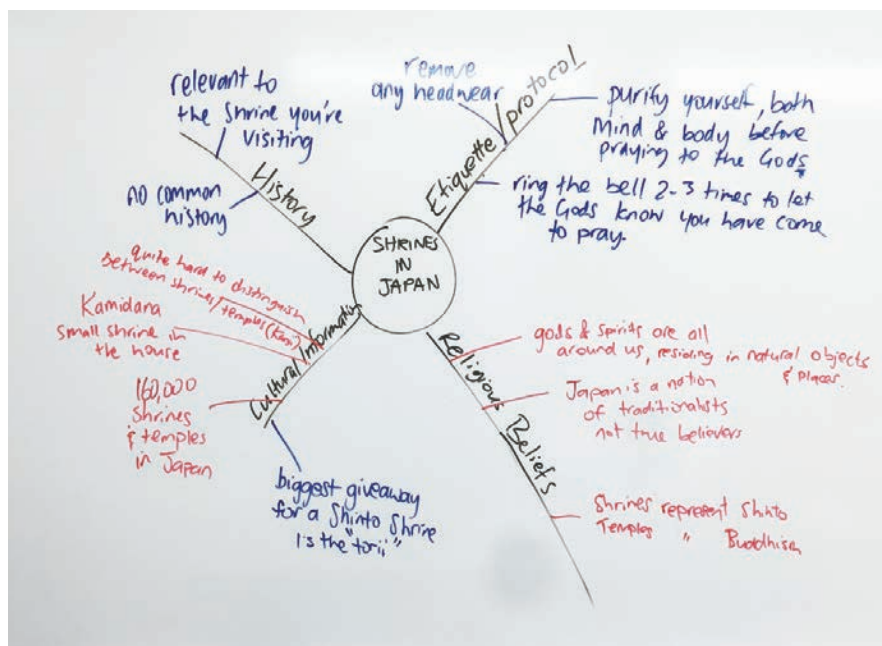 SHRINES
IN
JAPAN
History
relevant to
the Shrine you're
visiting
no common
history
Etiquette/protocol
remove
any headwear
purify yourself, both
Mind & body before
praying to the Gods
ring the bell 2-3 times to let
the Gods know you have come
to pray.
Cultural Information
quite hard to distinguish
between shrines/temples
Kamidana
small shrine in
the house
160,000
Shrines
& temples
in Japan
biggest giveaway
for a Shinto Shrine
is the "torii"
Religious Beliefs
gods & spirits are all
around us, residing in natural objects
& places.
Japan is a nation
of traditionalists
not true believers
Shrines represent Shinto
Temples " Buddhism